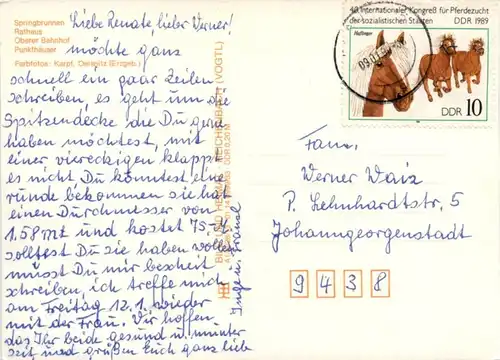 Springbrunnen
Rathaus
Oberer Bahnhof
Punkthäuser
Farbfotos: Karpf, Oelsnitz (Erzgeb.)
Liebe Renate, lieber Werner!
möchte ganz
schnell ein paar Zeilen
schreiben, es geht um die
Spitzendecke die Du gerne
haben möchtest, mit
einer viereckigen klappt
es nicht Du könntest eine
runde bekommen sie hat
einen Durchmesser von
1.58 mt und kostet 75.-M.
solltest Du sie haben wollen
müsst Du mir bescheit
schreiben, ich treffe mich
am Freitag 12.1. wieder
mit der Frau. Wir hoffen
das Ihr beide gesund u. munter
seit und grüßen Euch ganz liebe
BILD UND HEIMAT REICHENBACH (VOGTL)
DDR 0,20 M
40. Internationaler Kongreß für Pferdezucht
der sozialistischen Staaten
DDR 1989
Haflinger
DDR 10
Fam.
Werner Waiz
P. Lehnhardtstr. 5
Johanngeorgenstadt
9438